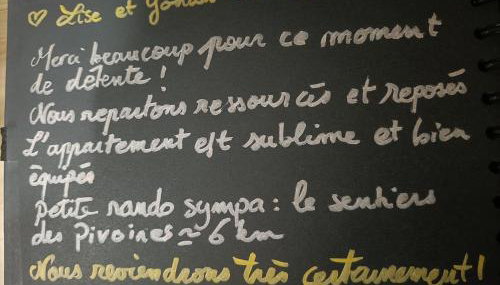 ♡ Lise et Yohan
Merci beaucoup pour ce moment
de détente !
Nous repartons ressourcés et reposés
L'appartement est sublime et bien
équipés
petite rando sympa : le sentiers
des Pivoines ≃ 6 km
Nous reviendrons très certainement !